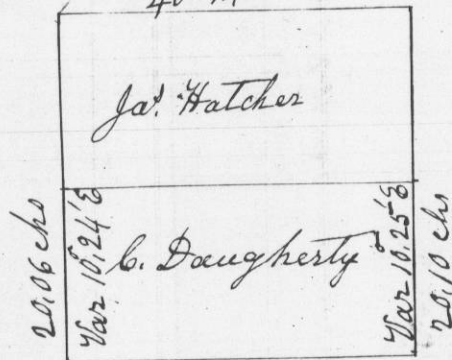 Jas. Hatcher
20,06 chs
Var 10°,24' E
C. Daugherty
Var 10°,25' E
20,10 chs